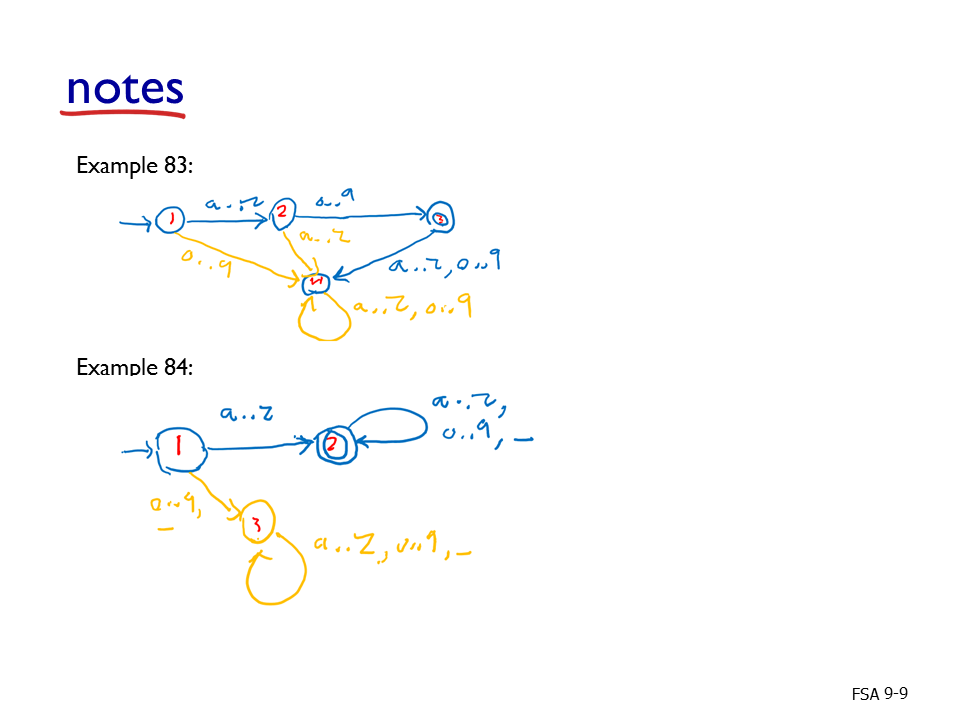 notes
Example 83:
a..z
0..9
1
2
3
a..z
0..9
a..z, 0..9
4
a..z, 0..9
Example 84:
a..z,
a..z
0..9, _
1
2
0..9,
_
3
a..z, 0..9, _
FSA 9-9